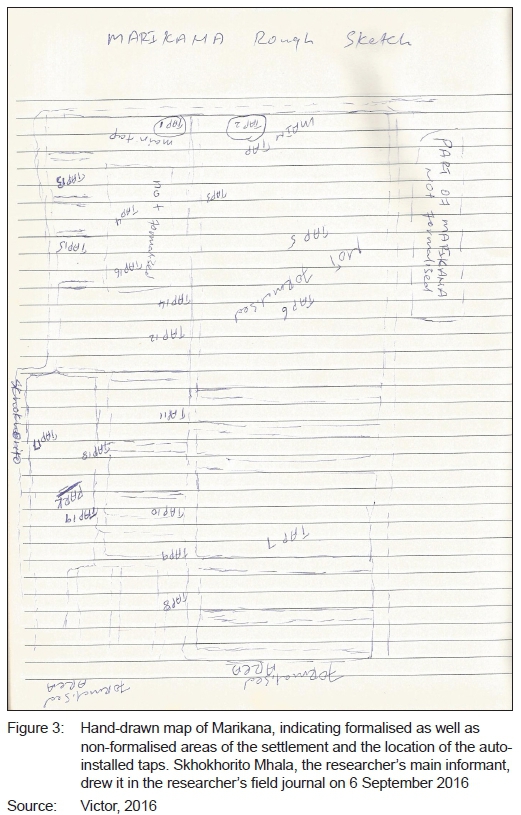 MARIKAMA Rough Sketch
TAP 1
main tap
TAP 2
MAIN
TAP
PART OF MARIKANA
NOT FORMALISED
TAP13
not formalised
TAP3
TAP 4
TAP 5
TAP15
TAP16
NOT
FORMALISED
TAP 6
TAP14
TAP 12
TAP11
TAP17
TAP18
PARK
TAP 19
TAP10
TAP 7
TAP9
TAP8
FORMALISED
AREA
FORMALISED
AREA
Figure 3: Hand-drawn map of Marikana, indicating formalised as well as
non-formalised areas of the settlement and the location of the auto-
installed taps. Skhokhorito Mhala, the researcher's main informant,
drew it in the researcher's field journal on 6 September 2016
Source: Victor, 2016